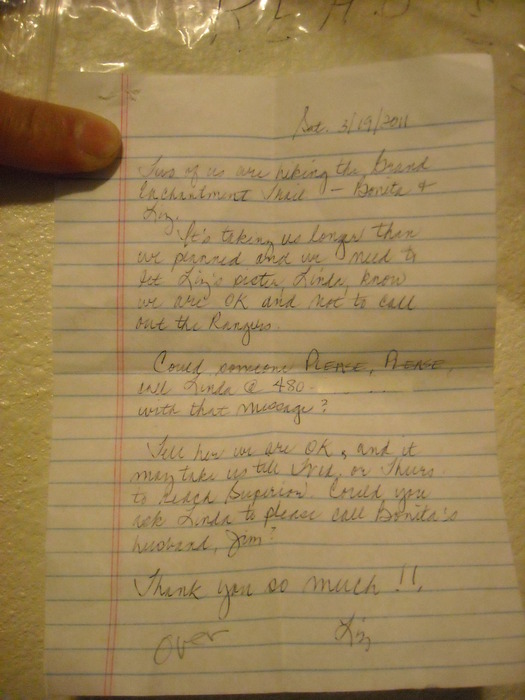 Sat. 3/19/2011
Two of us are hiking the Grand
Enchantment Trail - Bonita &
Liz.
It's taking us longer than
we planned and we need to
let Liz's sister, Linda, know
we are OK and not to call
out the Rangers.
Could someone PLEASE, PLEASE,
call Linda @ 480-
with that message?
Tell her we are OK, and it
may take us till Wed. or Thurs.
to reach Superior. Could you
ask Linda to please call Bonita's
husband, Jim?
Thank you so much!!,
Over Liz